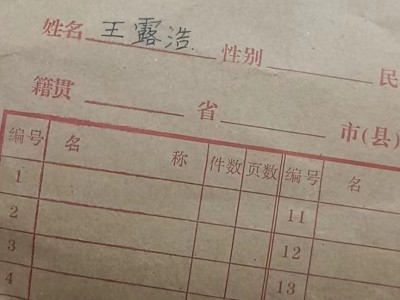 姓名 王露浩 性别 民
籍贯 省 市(县)
编号 名 称 件数 页数 编号 名
1
2 11
3 12
4 13